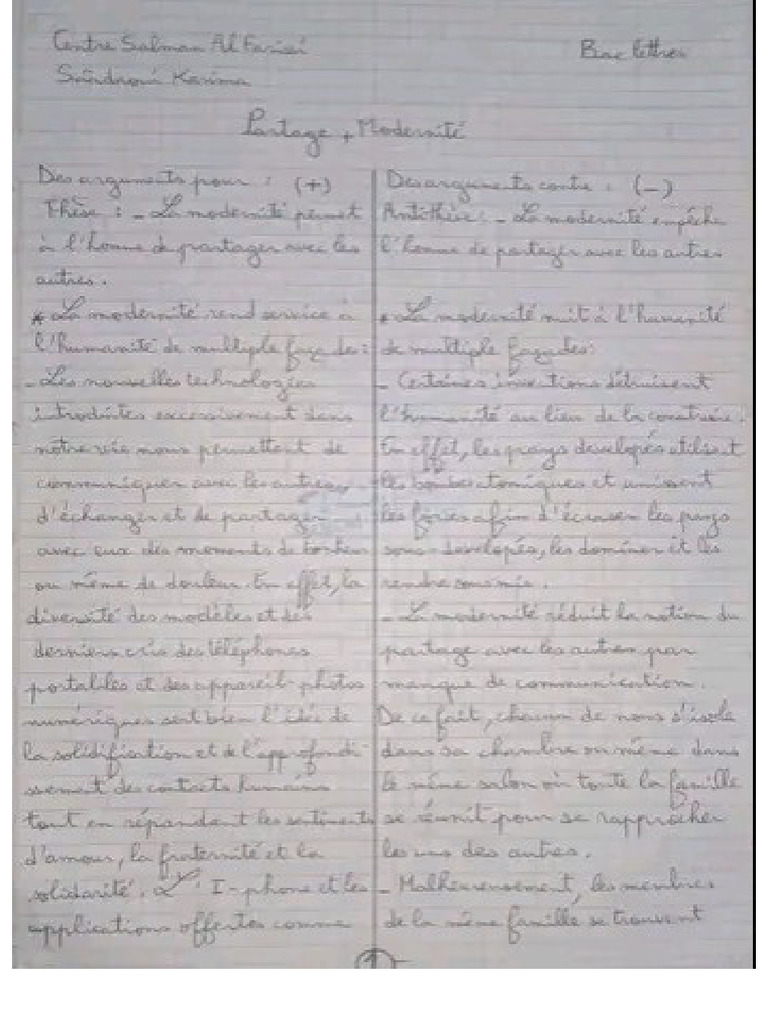 Centre Salman Al Farisi
Bac lettres
Karima
Partage + Modernité
Des arguments pour : (+)
Thèse : - La modernité permet
à l'homme de partager avec les
autres.
* La modernité rend service à
l'humanité de multiple façade :
- Les nouvelles technologies
introduites excessivement dans
notre vie nous permettent de
communiquer avec les autres,
d'échanger et de partager
avec eux des moments de bonheur
ou même de douleur. En effet, la
diversité des modèles et des
derniers cris des téléphones
portables et des appareils photos
numériques sert bien l'idée de
la solidification et de l'approfondi-
ssement des contacts humains
tout en répandant les sentiments
d'amour, la fraternité et la
solidarité. L' I-phone et les
applications offertes comme
Des arguments contre : (-)
Antithèse : - La modernité empêche
l'homme de partager avec les autres
* La modernité nuit à l'humanité
de multiple façades :
- Certaines inventions détruisent
l'humanité au lieu de la construire.
En effet, les pays developés utilisent
les bombes atomiques et unissent
les forces afin d'écraser les pays
sous-developés, les dominer et les
rendre
- La modernité réduit la notion du
partage avec les autres par
manque de communication.
De ce fait, chacun de nous s'isole
dans sa chambre ou même dans
le même salon où toute la famille
se réunit pour se rapprocher
les uns des autres.
- Malheureusement, les membres
de la même famille se trouvent
1